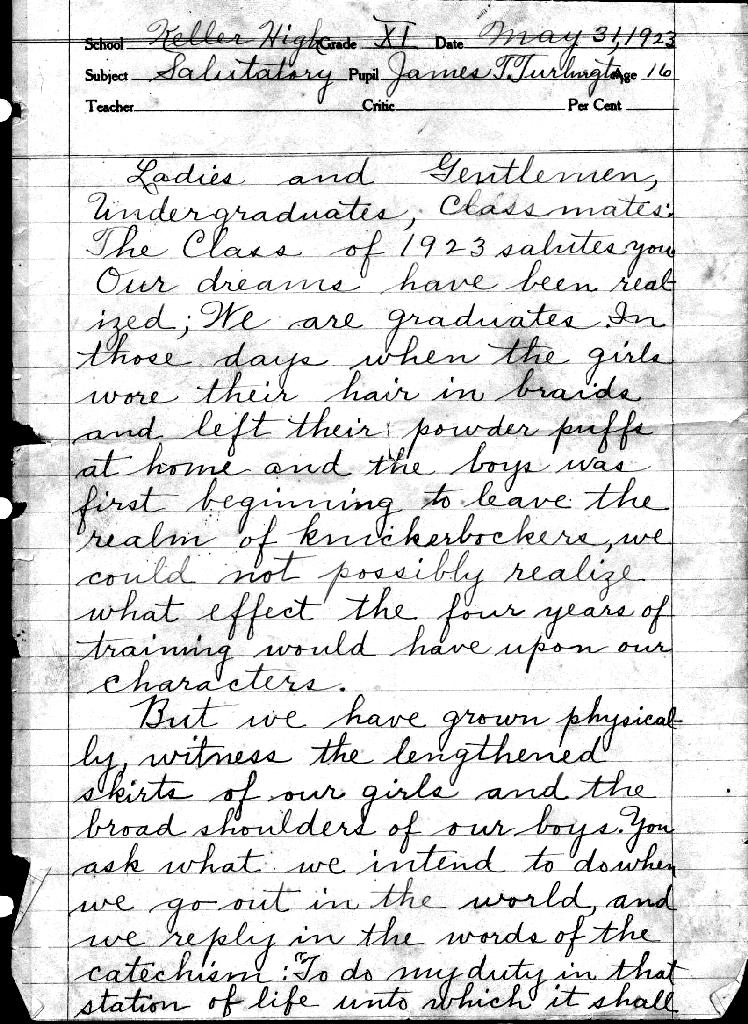 School Keller High Grade XI Date May 31, 1923
Subject Salutatory Pupil James T. Turlington Age 16
Teacher Critic Per Cent
Ladies and Gentlemen,
Undergraduates, Classmates:
The Class of 1923 salutes you
Our dreams have been real-
ized; We are graduates. In
those days when the girls
wore their hair in braids
and left their powder puffs
at home and the boys was
first beginning to leave the
realm of knickerbockers, we
could not possibly realize
what effect the four years of
training would have upon our
characters.
But we have grown physical-
ly, witness the lengthened
skirts of our girls and the
broad shoulders of our boys. You
ask what we intend to do when
we go out in the world, and
we reply in the words of the
catechism: "To do my duty in that
station of life unto which it shall